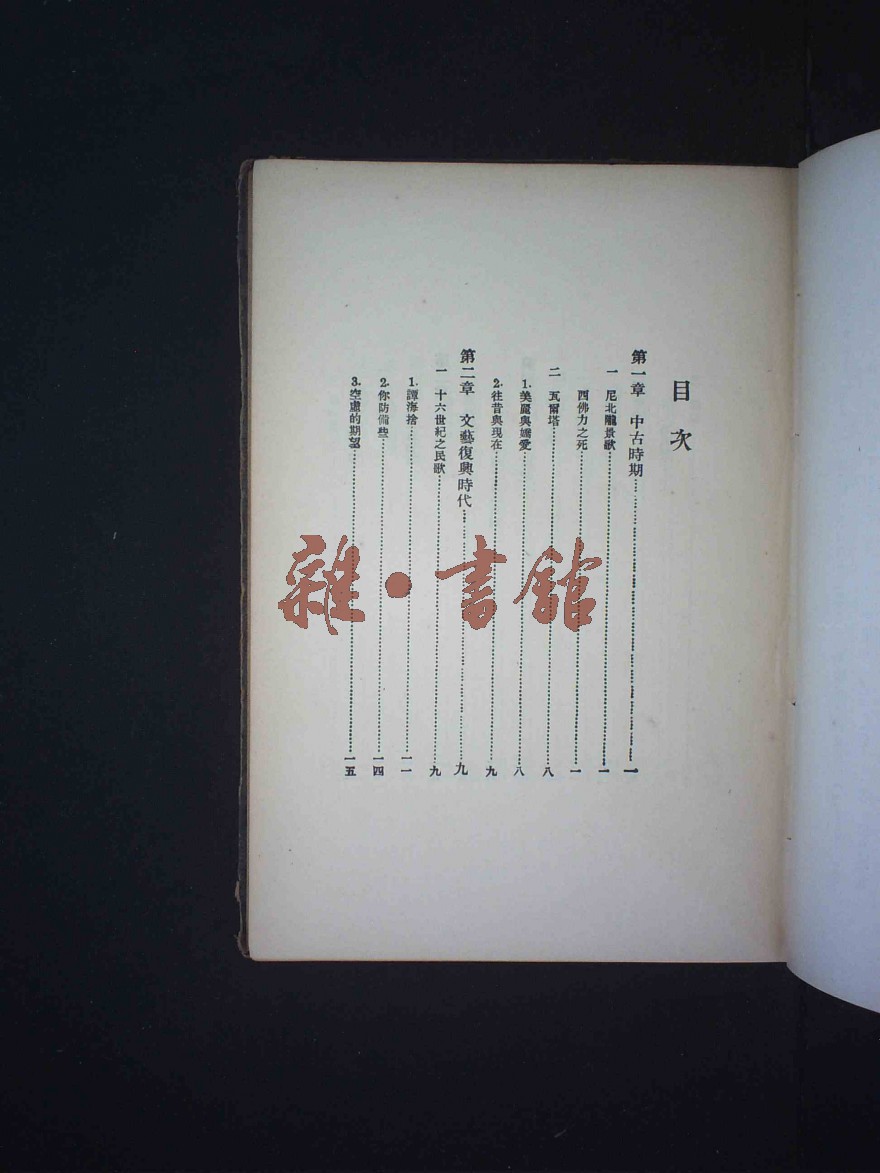 目次
第一章 中古時期……一
一 尼北龍景歌……一
西佛力之死……一
二 瓦爾塔……八
1.美麗與嬌愛……八
2.往昔與現在……九
第二章 文藝復興時代……九
一 十六世紀之民歌……九
1.譚海捨……一一
2.你防備些……一四
3.空虛的期望……一五
雜·書館